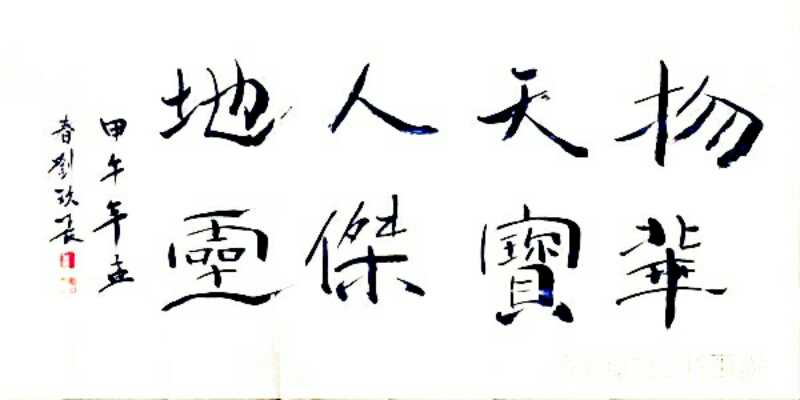 物華
天寶
人傑
地靈
甲午年孟
春劉